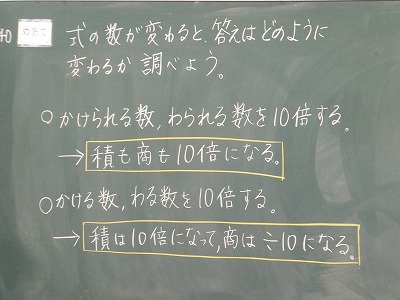 めあて
式の数が変わると、答えはどのように
変わるか調べよう。
○かけられる数,わられる数を10倍する。
→積も商も10倍になる。
○かける数,わる数を10倍する。
→積は10倍になって,商は÷10になる。